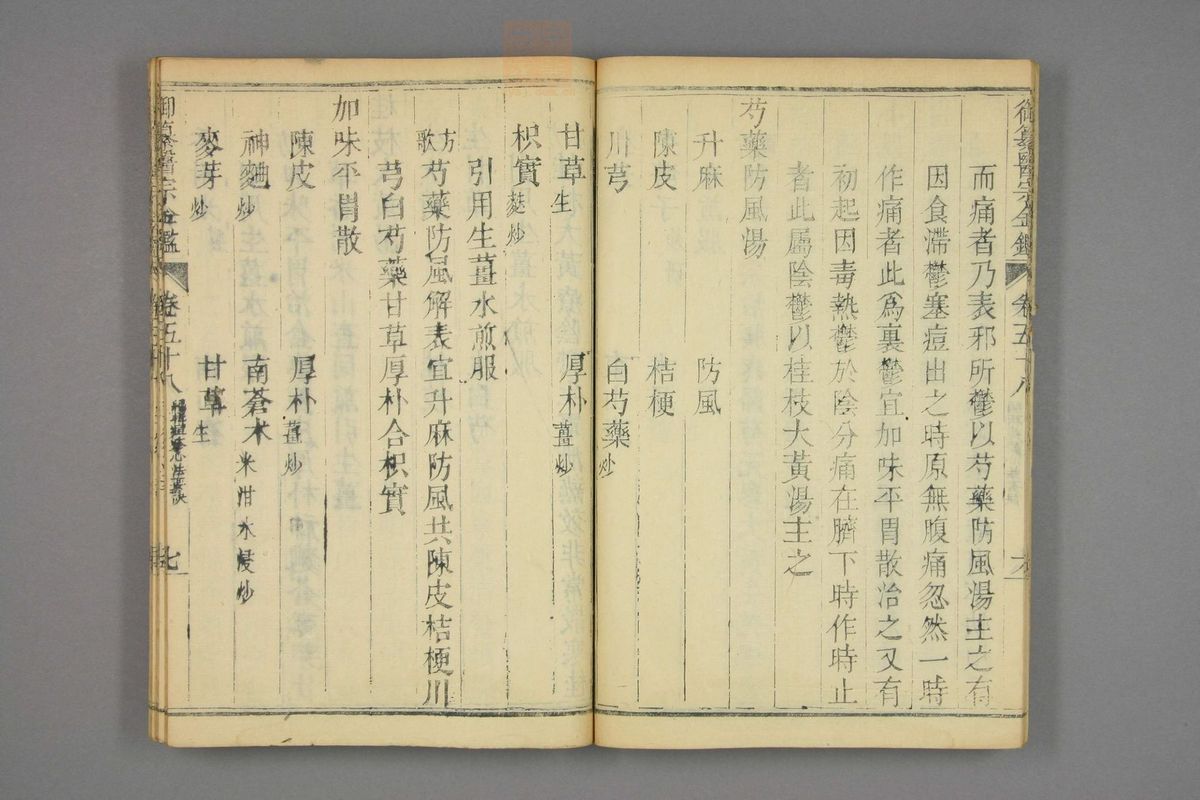 御纂醫宗金鑑 卷五十八 六
而痛者乃表邪所鬱以芍藥防風湯主之有
因食滯鬱塞痘出之時原無腹痛忽然一時
作痛者此爲裏鬱宜加味平胃散治之又有
初起因毒熱鬱於陰分痛在臍下時作時止
者此屬陰鬱以桂枝大黃湯主之
芍藥防風湯
升麻 防風
陳皮 桔梗
川芎 白芍藥炒
甘草生 厚朴薑炒
枳實麩炒
引用生薑水煎服
方歌 芍藥防風解表宜升麻防風共陳皮桔梗川
芎白芍藥甘草厚朴合枳實
加味平胃散
陳皮 厚朴薑炒
神麯炒 南蒼朮米泔水浸炒
麥芽炒 甘草生
御纂醫宗金鑑 卷五十八 七